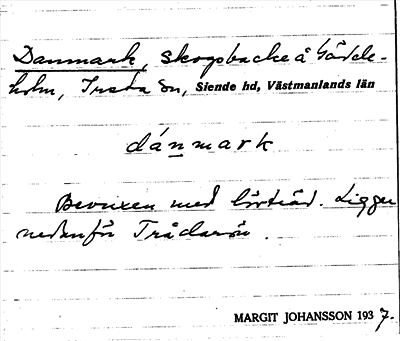 Danmark, skogsbacke å Gäddeholm, Irsta sn, Siende hd, Västmanlands län
dánmark
Bevuxen med lövträd. Ligger
nedanför Trådarön.
MARGIT JOHANSSON 1937.